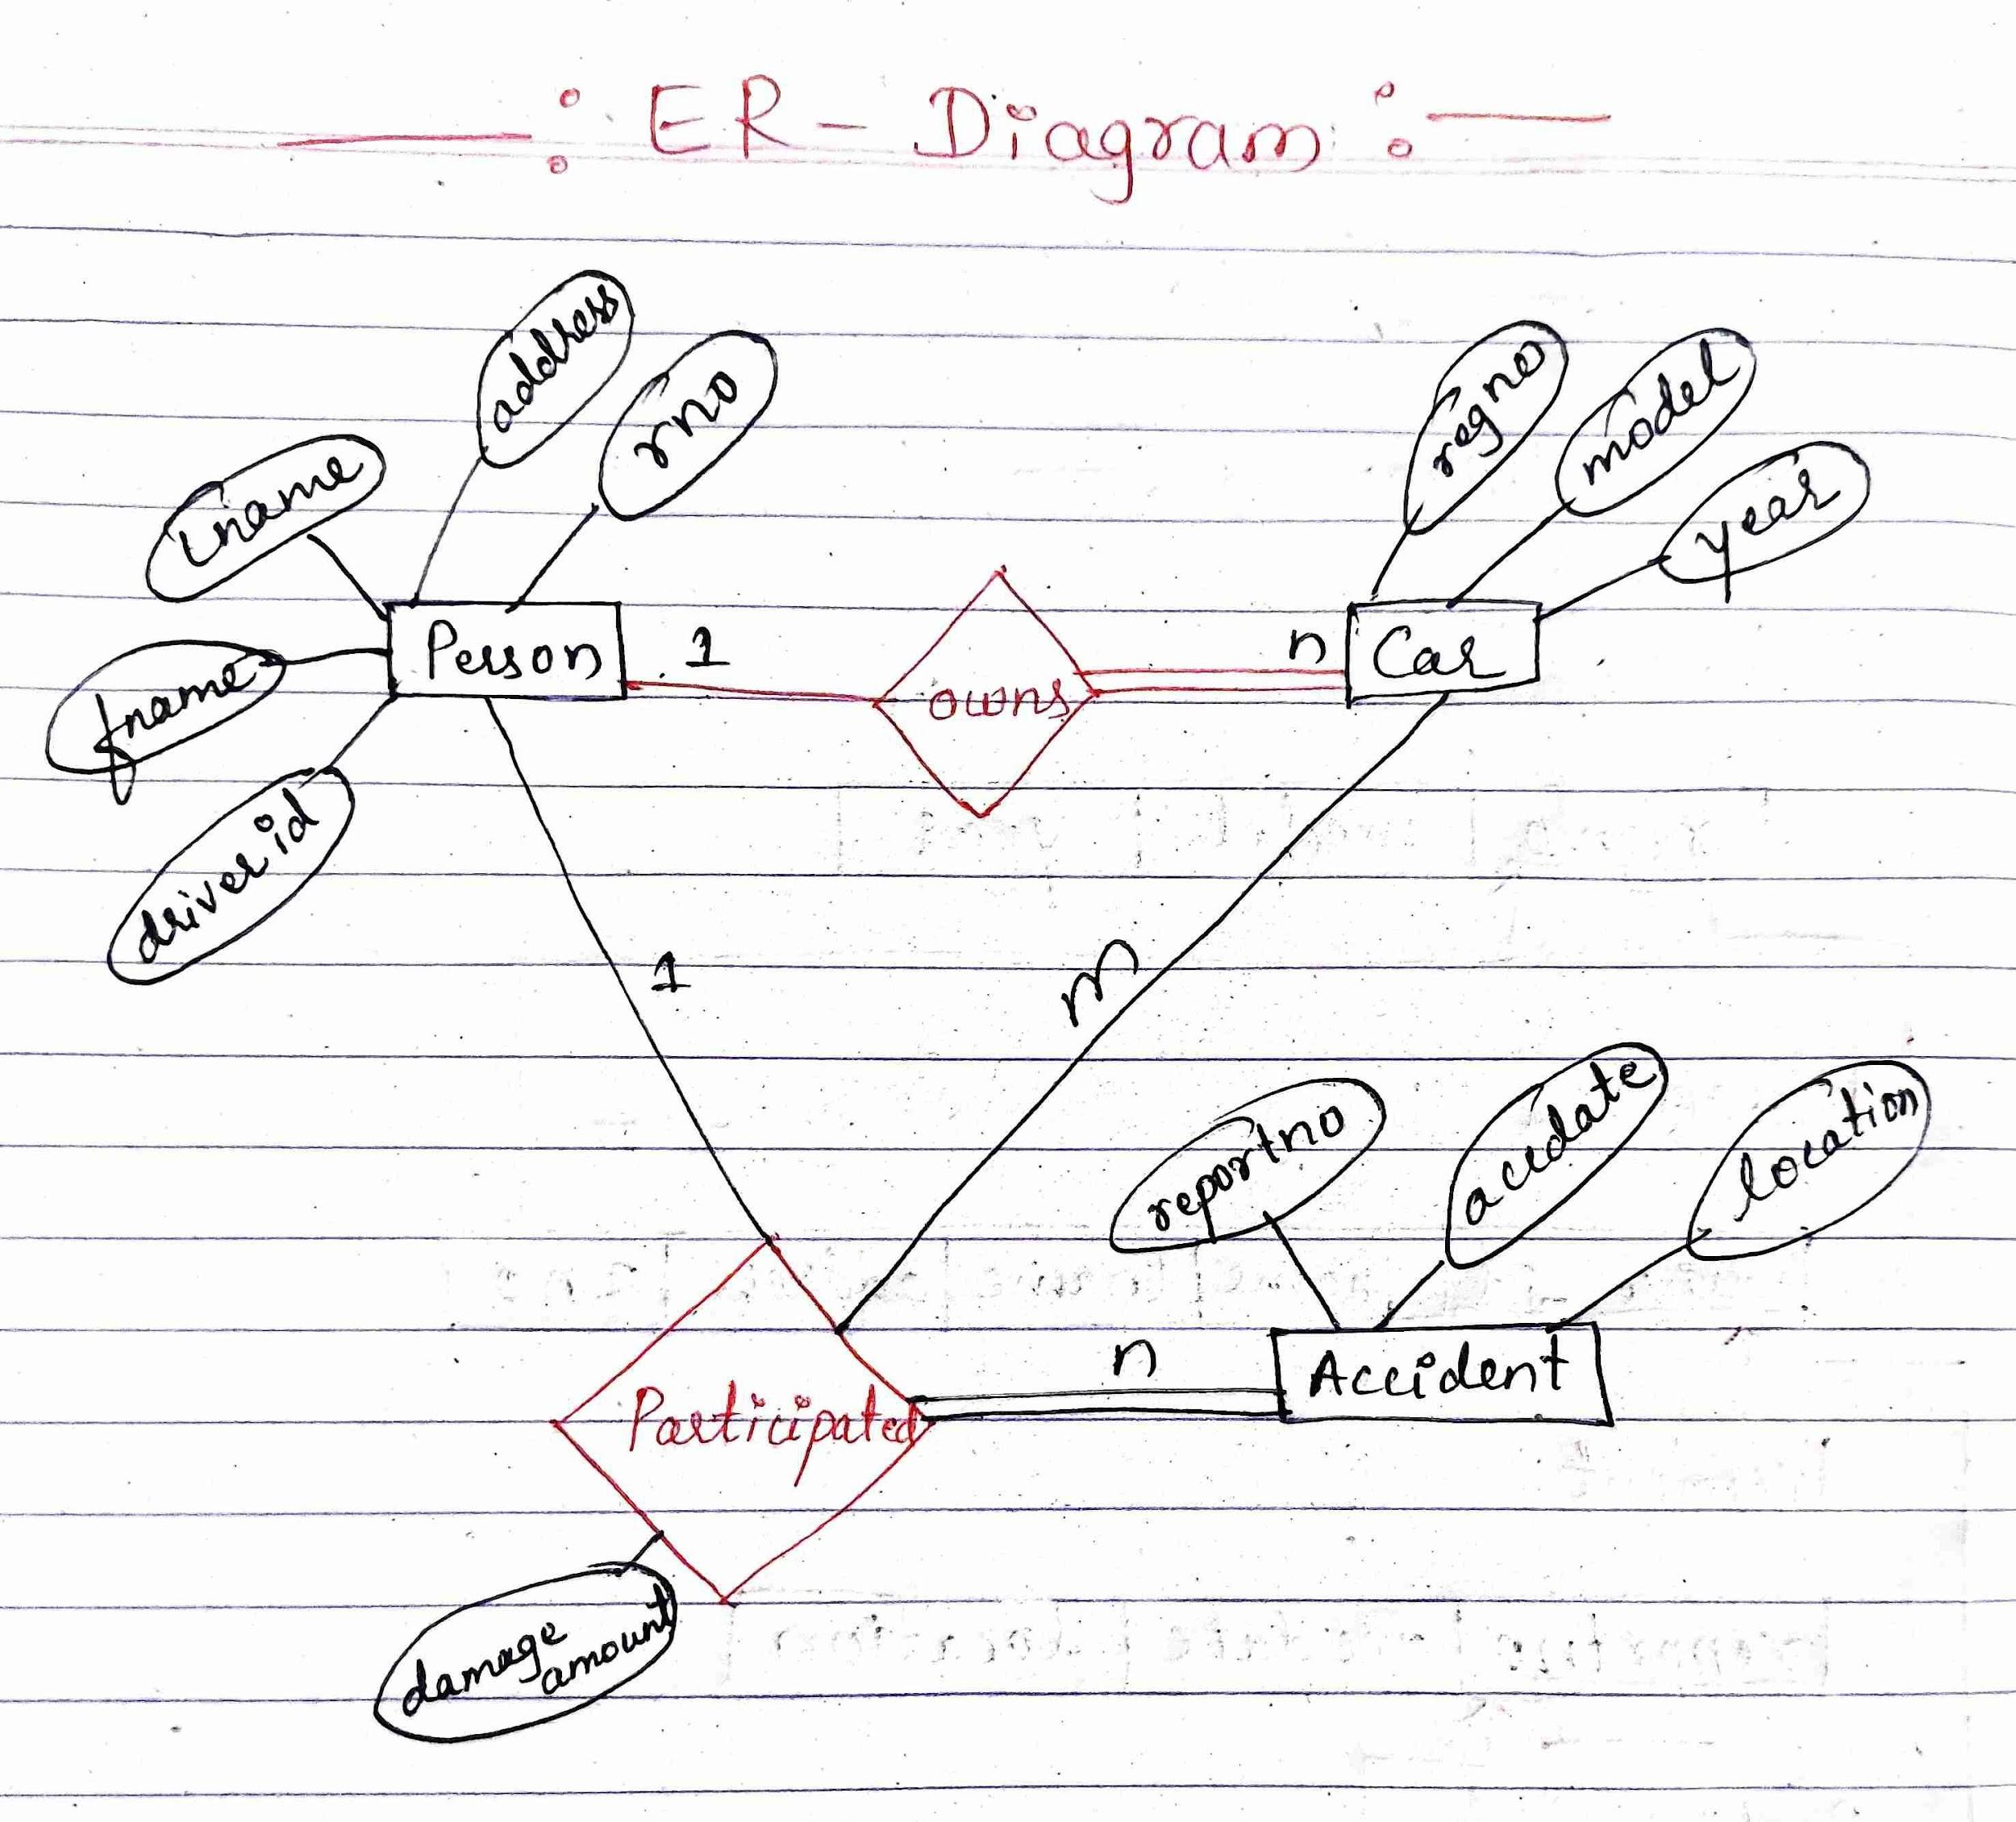 —: ER - Diagram :—
address
rno
lname
fname
driver id
Person
1
owns
n
Car
regno
model
year
1
m
reportno
accdate
location
Participated
n
Accident
damage
amount